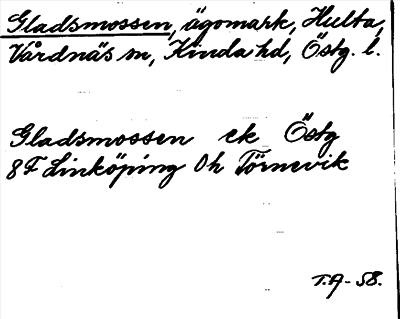 Gladsmossen, ägomark, Hulta,
Vårdnäs sn, Kinda hd, Östg. l.
Gladsmossen ek Östg
8F Linköping 0h Törnevik
T.A-58.